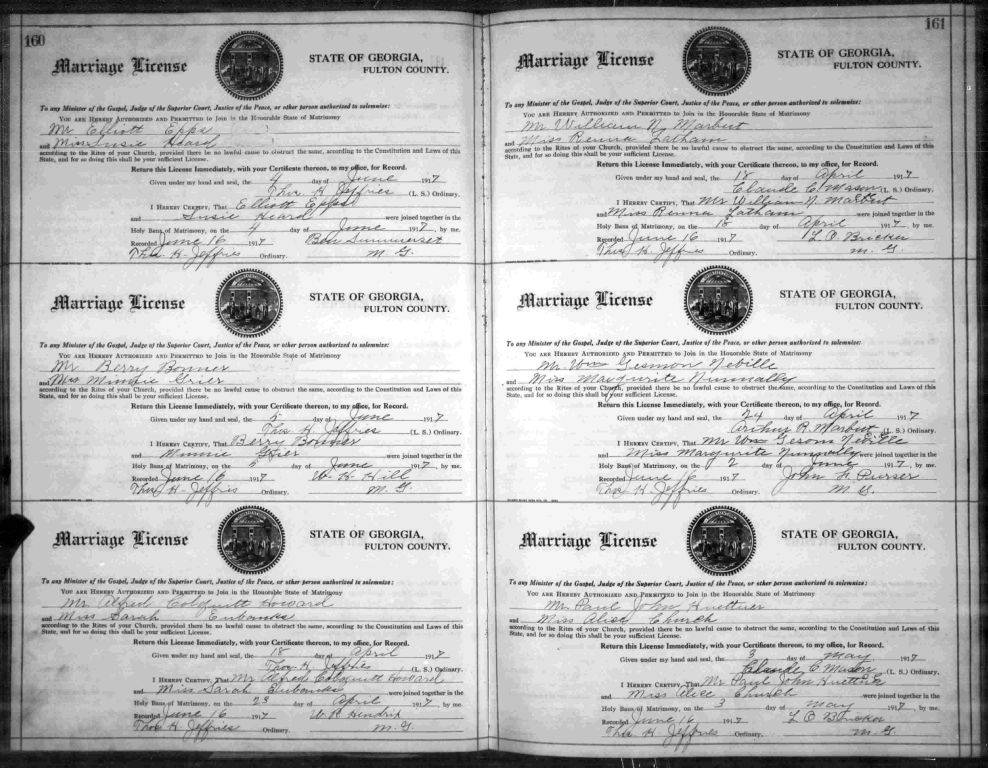 160
Marriage License
STATE OF GEORGIA,
FULTON COUNTY.
To any Minister of the Gospel, Judge of the Superior Court, Justice of the Peace, or other person authorized to solemnize:
YOU ARE HEREBY AUTHORIZED AND PERMITTED to Join in the Honorable State of Matrimony
Mr Elliott Epps
and Miss Susie Heard
according to the Rites of your Church, provided there be no lawful cause to obstruct the same, according to the Constitution and Laws of this
State, and for so doing this shall be your sufficient License.
Return this License Immediately, with your Certificate thereon, to my office, for Record.
Given under my hand and seal, the 4 day of June 1917
Thos. H. Jeffries (L. S.) Ordinary.
I HEREBY CERTIFY, That Elliott Epps
and Susie Heard were joined together in the
Holy Bans of Matrimony, on the 4 day of June 1917, by me.
Recorded June 16 1917 Ben Summerset
Thos H. Jeffries Ordinary. M. G.
Marriage License
STATE OF GEORGIA,
FULTON COUNTY.
To any Minister of the Gospel, Judge of the Superior Court, Justice of the Peace, or other person authorized to solemnize:
YOU ARE HEREBY AUTHORIZED AND PERMITTED to Join in the Honorable State of Matrimony
Mr. Berry Bonner
and Miss Minnie Grier
according to the Rites of your Church, provided there be no lawful cause to obstruct the same, according to the Constitution and Laws of this
State, and for so doing this shall be your sufficient License.
Return this License Immediately, with your Certificate thereon, to my office, for Record.
Given under my hand and seal, the 2 day of June 1917
Thos H. Jeffries (L. S.) Ordinary.
I HEREBY CERTIFY, That Berry Bonner
and Minnie Grier were joined together in the
Holy Bans of Matrimony, on the day of June 1917, by me.
Recorded June 16 1917 W. H. Hill
Thos H. Jeffries Ordinary. M. G.
Marriage License
STATE OF GEORGIA,
FULTON COUNTY.
To any Minister of the Gospel, Judge of the Superior Court, Justice of the Peace, or other person authorized to solemnize:
YOU ARE HEREBY AUTHORIZED AND PERMITTED to Join in the Honorable State of Matrimony
Mr. Alfred Colquitt Howard
and Miss Sarah Eubanks
according to the Rites of your Church, provided there be no lawful cause to obstruct the same, according to the Constitution and Laws of this
State, and for so doing this shall be your sufficient License.
Return this License Immediately, with your Certificate thereon, to my office, for Record.
Given under my hand and seal, the 18 day of April 1917
Thos H. Jeffries (L. S.) Ordinary.
I HEREBY CERTIFY, That Mr Alfred Colquitt Howard
and Miss Sarah Eubanks were joined together in the
Holy Bans of Matrimony, on the 23 day of April 1917, by me.
Recorded June 16 1917 W. R. Hendrix
Thos H. Jeffries Ordinary. M. G.
161
Marriage License
STATE OF GEORGIA,
FULTON COUNTY.
To any Minister of the Gospel, Judge of the Superior Court, Justice of the Peace, or other person authorized to solemnize:
YOU ARE HEREBY AUTHORIZED AND PERMITTED to Join in the Honorable State of Matrimony
Mr William N. Marbut
and Miss Renna Latham
according to the Rites of your Church, provided there be no lawful cause to obstruct the same, according to the Constitution and Laws of this
State, and for so doing this shall be your sufficient License.
Return this License Immediately, with your Certificate thereon, to my office, for Record.
Given under my hand and seal, the 18 day of April 1917
Claude C. Mason (L. S.) Ordinary.
I HEREBY CERTIFY, That Mr William N. Marbut
and Miss Renna Latham were joined together in the
Holy Bans of Matrimony, on the 18 day of April 1917, by me.
Recorded June 16 1917 L. O. Bricker
Thos H. Jeffries Ordinary. M. G.
Marriage License
STATE OF GEORGIA,
FULTON COUNTY.
To any Minister of the Gospel, Judge of the Superior Court, Justice of the Peace, or other person authorized to solemnize:
YOU ARE HEREBY AUTHORIZED AND PERMITTED to Join in the Honorable State of Matrimony
Mr. Wm Neville
and Miss Margurite Nunnally
according to the Rites of your Church, provided there be no lawful cause to obstruct the same, according to the Constitution and Laws of this
State, and for so doing this shall be your sufficient License.
Return this License Immediately, with your Certificate thereon, to my office, for Record.
Given under my hand and seal, the 24 day of April 1917
Arthur R. Marbut (L. S.) Ordinary.
I HEREBY CERTIFY, That Mr Wm Neville
and Miss Margurite Nunnally were joined together in the
Holy Bans of Matrimony, on the 2 day of June 1917, by me.
Recorded June 16 1917 John F. Purser
Thos H. Jeffries Ordinary. M. G.
Marriage License
STATE OF GEORGIA,
FULTON COUNTY.
To any Minister of the Gospel, Judge of the Superior Court, Justice of the Peace, or other person authorized to solemnize:
YOU ARE HEREBY AUTHORIZED AND PERMITTED to Join in the Honorable State of Matrimony
Mr. Paul John Huettner
and Miss Alice Church
according to the Rites of your Church, provided there be no lawful cause to obstruct the same, according to the Constitution and Laws of this
State, and for so doing this shall be your sufficient License.
Return this License Immediately, with your Certificate thereon, to my office, for Record.
Given under my hand and seal, the 3 day of May 1917
Claude C Mason (L. S.) Ordinary.
I HEREBY CERTIFY, That Mr. Paul John Huettner
and Miss Alice Church were joined together in the
Holy Bans of Matrimony, on the 3 day of May 1917, by me.
Recorded June 16, 1917 L O Bricker
Thos H. Jeffries Ordinary. M. G.